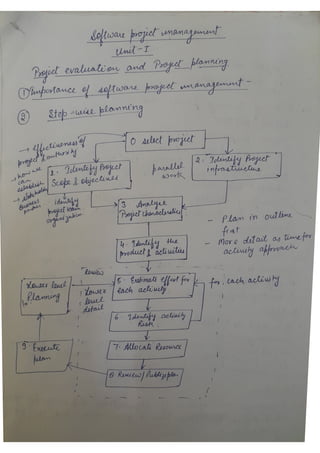 Software project management
Unit - I
Project evaluation and Project planning
① Importance of software project management -
② Step-wise planning
→ effectiveness of
project authority
→ how we
can
establish
→ stakeholder
0 select project
1. Identify Project
Scope & Objectives
parallel
work
2. Identify Project
infrastructure
identify
project team
organization
3 Analyse
Project characteristics
- Plan in outline
first
- More detail as time for
activity approach
4. Identify the
product & activities
Review
Lower
level
detail
5. Estimate effort for
each activity
for each activity
10 Lower level
Planning
6. Identify activity
Risk
9. Execute
plan
7. Allocate Resource
8 Review / Publicize plan